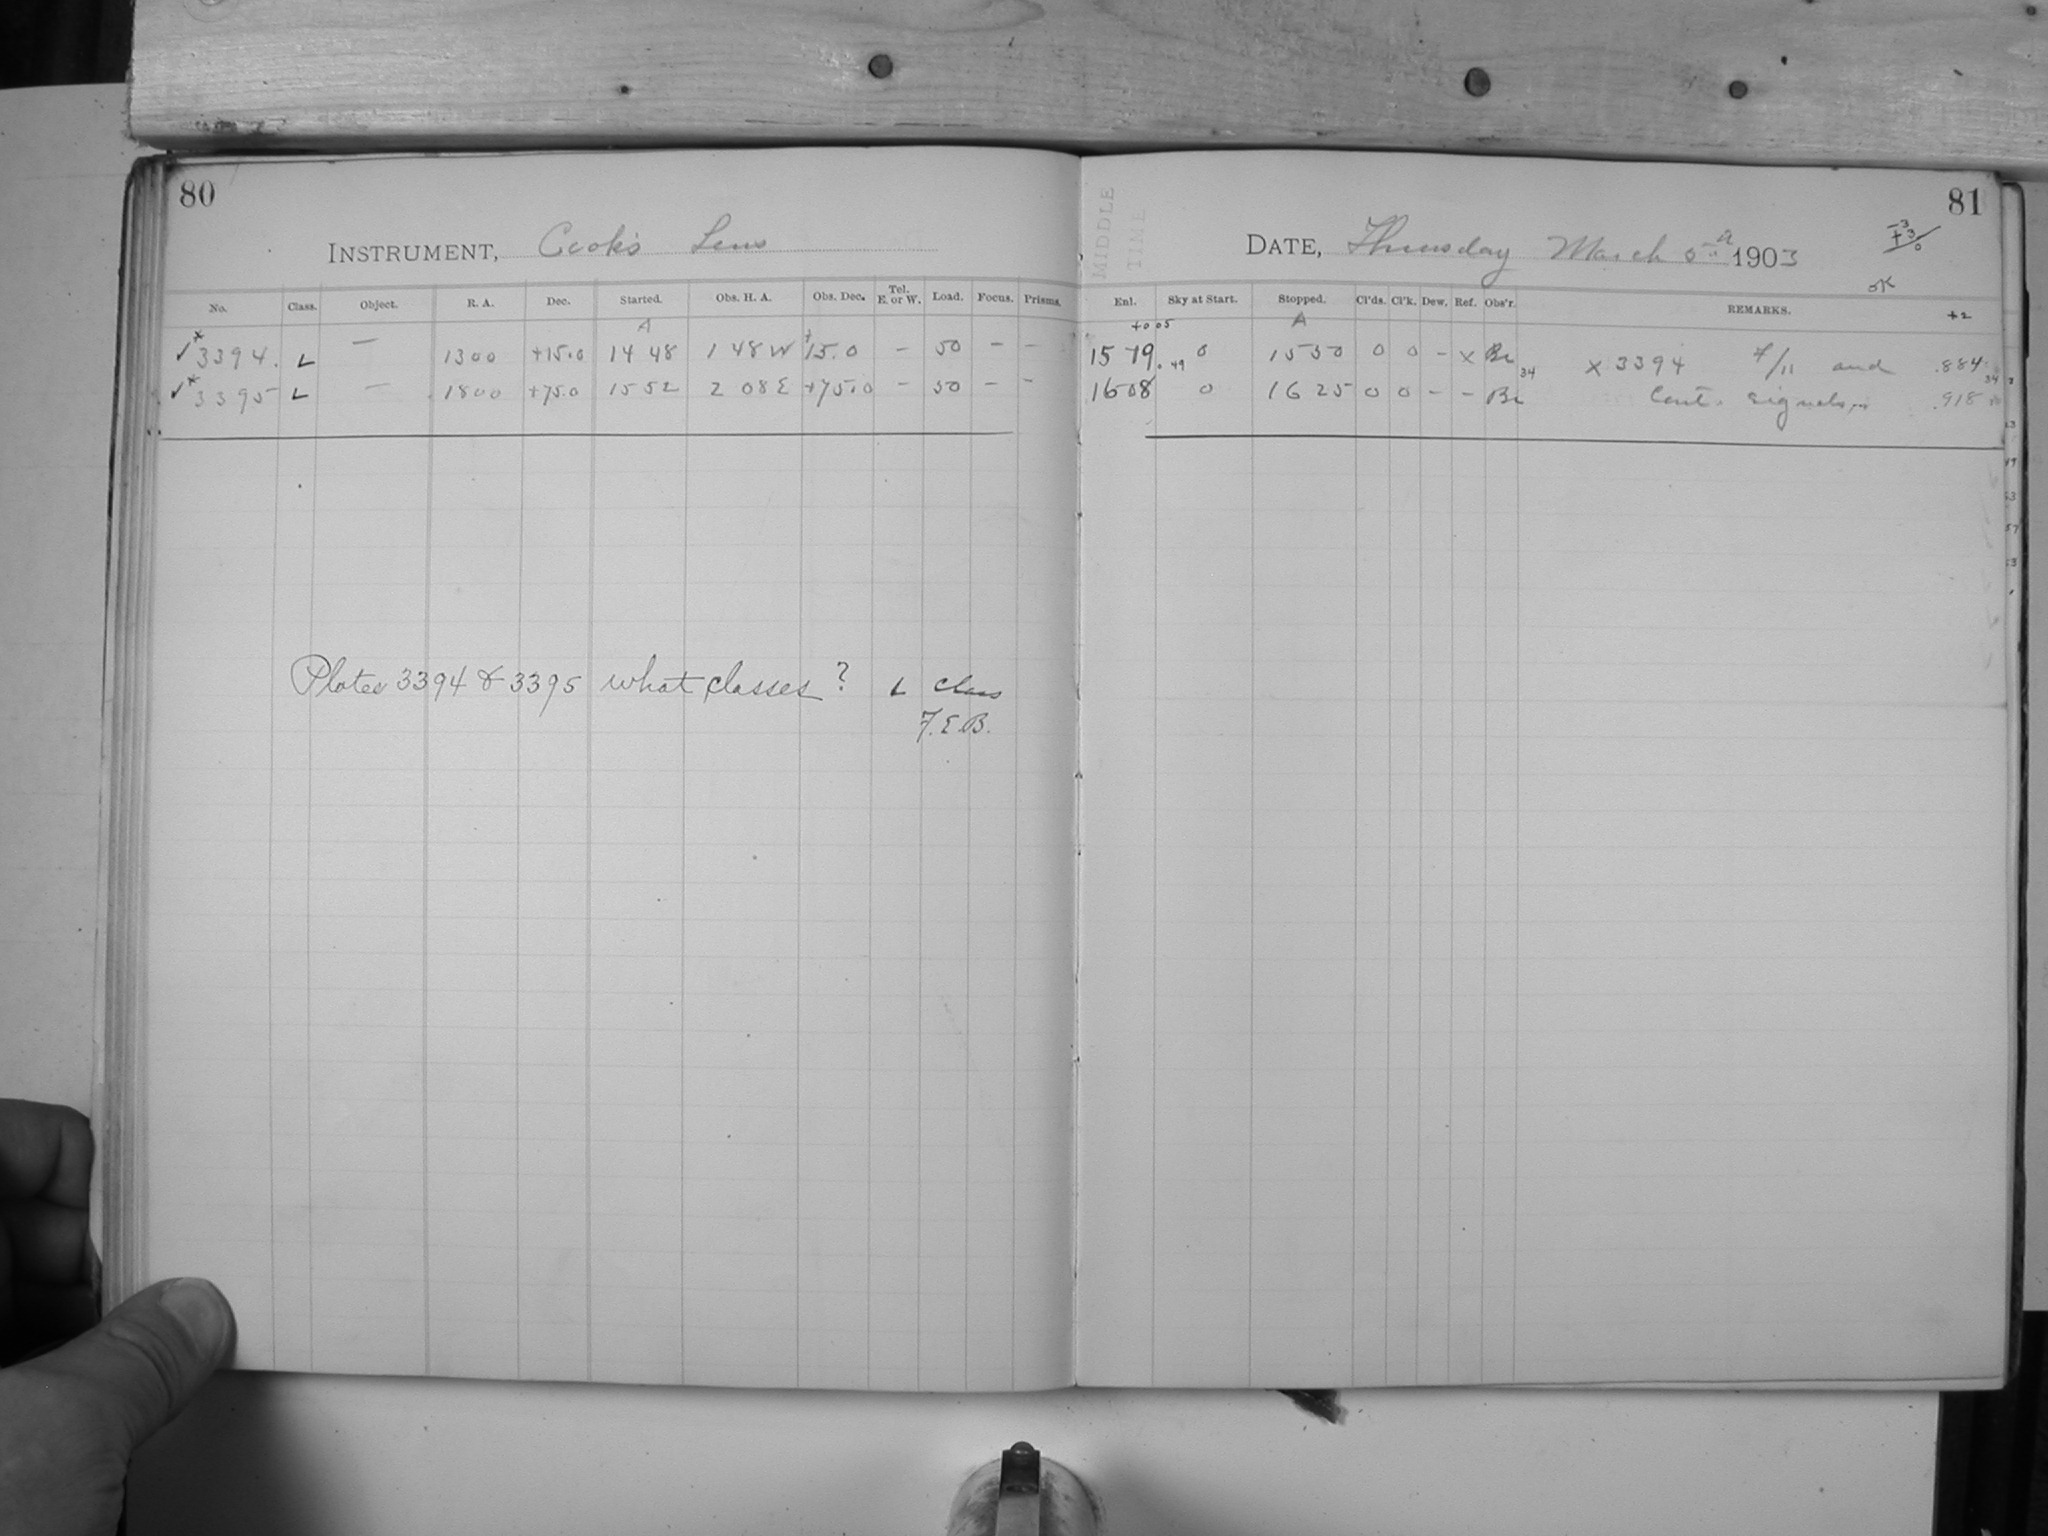 80
INSTRUMENT, Cooke Lens
No. Class. Object. R. A. Dec. Started. Obs. H. A. Obs. Dec. Tel. E. or W. Load. Focus. Prisms.
A
✓* 3394. L — 1300 +15.0 14 48 1 48 W +15.0 — 50 — —
✓* 3395 L — 1800 +75.0 15 52 2 08 E +75.0 — 50 — —
Plates 3394 & 3395 what classes? L class
F.E.B.
81
MIDDLE TIME
DATE, Thursday March 5 1903
-3
+3
0
OK
Enl. Sky at Start. Stopped. Cl'ds. Cl'k. Dew. Ref. Obs'r. REMARKS. +2
+0 05 A
15 19. 49 0 15 50 0 0 — x Br 34 x 3394 F/11 and .884
16 08 0 16 25 0 0 — — Br Cont. signals. 34 .918